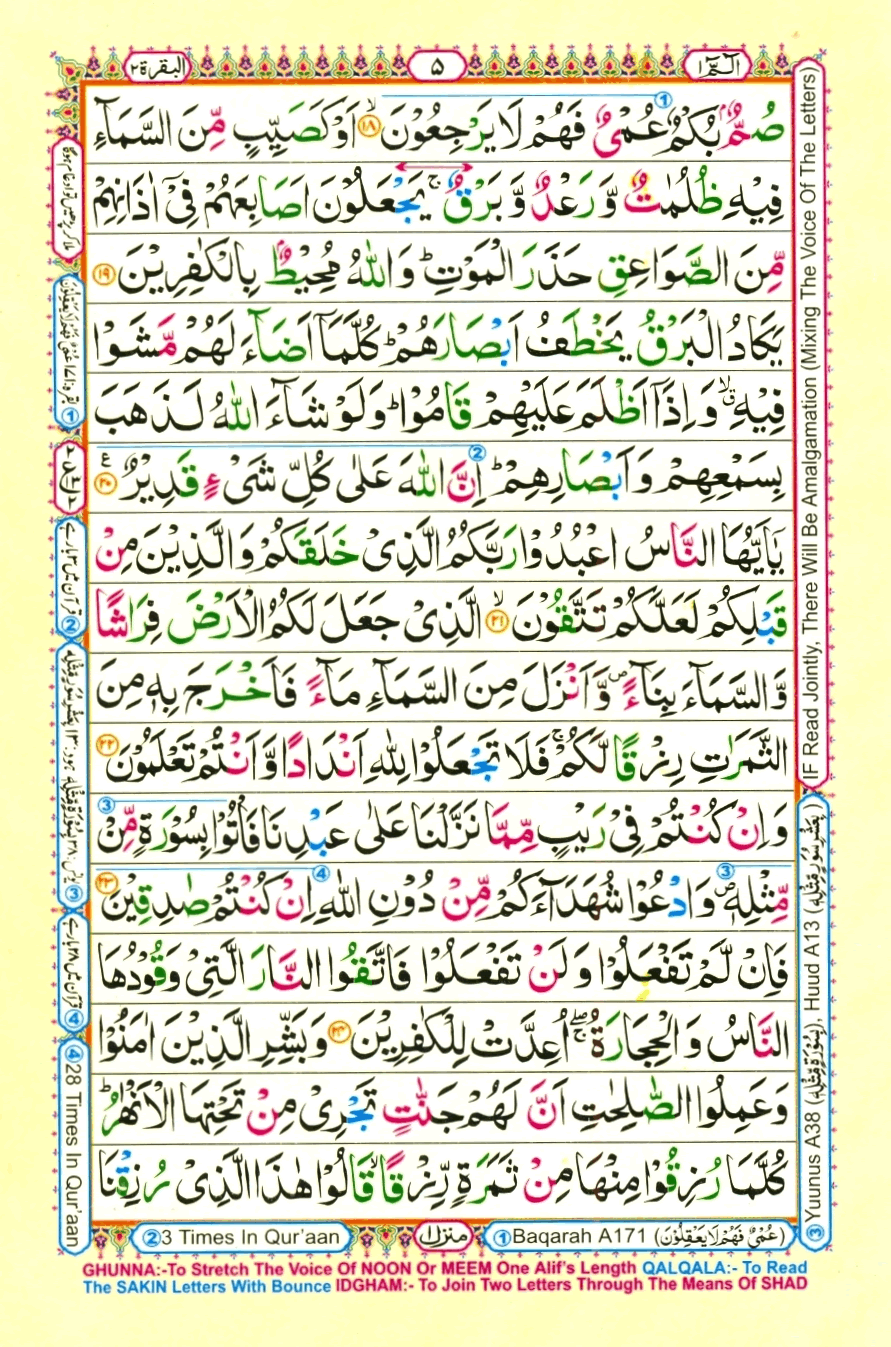 البقرة ٢
٥
الٓمّٓ ١
صُمٌّۢ بُكْمٌ عُمْیٌ فَهُمْ لَا یَرْجِعُوْنَۙ ۝۱۸ اَوْ كَصَیِّبٍ مِّنَ السَّمَآءِ
فِیْهِ ظُلُمٰتٌ وَّ رَعْدٌ وَّ بَرْقٌۚ یَجْعَلُوْنَ اَصَابِعَهُمْ فِیْۤ اٰذَانِهِمْ
مِّنَ الصَّوَاعِقِ حَذَرَ الْمَوْتِؕ وَ اللّٰهُ مُحِیْطٌۢ بِالْكٰفِرِیْنَ ۝۱۹
یَكَادُ الْبَرْقُ یَخْطَفُ اَبْصَارَهُمْؕ كُلَّمَاۤ اَضَآءَ لَهُمْ مَّشَوْا
فِیْهِۙۗ وَ اِذَاۤ اَظْلَمَ عَلَیْهِمْ قَامُوْاؕ وَ لَوْ شَآءَ اللّٰهُ لَذَهَبَ
بِسَمْعِهِمْ وَ اَبْصَارِهِمْؕ اِنَّ اللّٰهَ عَلٰی كُلِّ شَیْءٍ قَدِیْرٌ ۝۲۰ ع
یٰۤاَیُّهَا النَّاسُ اعْبُدُوْا رَبَّكُمُ الَّذِیْ خَلَقَكُمْ وَ الَّذِیْنَ مِنْ
قَبْلِكُمْ لَعَلَّكُمْ تَتَّقُوْنَۙ ۝۲۱ الَّذِیْ جَعَلَ لَكُمُ الْاَرْضَ فِرَاشًا
وَّ السَّمَآءَ بِنَآءً۪ وَّ اَنْزَلَ مِنَ السَّمَآءِ مَآءً فَاَخْرَجَ بِهٖ مِنَ
الثَّمَرٰتِ رِزْقًا لَّكُمْۚ فَلَا تَجْعَلُوْا لِلّٰهِ اَنْدَادًا وَّ اَنْتُمْ تَعْلَمُوْنَ ۝۲۲
وَ اِنْ كُنْتُمْ فِیْ رَیْبٍ مِّمَّا نَزَّلْنَا عَلٰی عَبْدِنَا فَاْتُوْا بِسُوْرَةٍ مِّنْ
مِّثْلِهٖ۪ وَ ادْعُوْا شُهَدَآءَكُمْ مِّنْ دُوْنِ اللّٰهِ اِنْ كُنْتُمْ صٰدِقِیْنَ ۝۲۳
فَاِنْ لَّمْ تَفْعَلُوْا وَ لَنْ تَفْعَلُوْا فَاتَّقُوا النَّارَ الَّتِیْ وَ قُوْدُهَا
النَّاسُ وَ الْحِجَارَةُۚۖ اُعِدَّتْ لِلْكٰفِرِیْنَ ۝۲۴ وَ بَشِّرِ الَّذِیْنَ اٰمَنُوْا
وَ عَمِلُوا الصّٰلِحٰتِ اَنَّ لَهُمْ جَنّٰتٍ تَجْرِیْ مِنْ تَحْتِهَا الْاَنْهٰرُؕ
كُلَّمَا رُزِقُوْا مِنْهَا مِنْ ثَمَرَةٍ رِّزْقًاۙ قَالُوْا هٰذَا الَّذِیْ رُزِقْنَا
① Baqarah A171 (عُمْیٌ فَهُمْ لَا یَعْقِلُوْنَ)
منزل ١
② 3 Times In Qur'aan
IF Read Jointly, There Will Be Amalgamation (Mixing The Voice Of The Letters)
③ Yuunus A38 (بِسُوْرَةٍ مِّثْلِهٖ), Huud A13 (بِعَشْرِ سُوَرٍ مِّثْلِهٖ)
② قرآن میں ۳ بار ہے
④ قرآن میں ۲۸ بار ہے
④ 28 Times In Qur'aan
GHUNNA:-To Stretch The Voice Of NOON Or MEEM One Alif's Length QALQALA:- To Read
The SAKIN Letters With Bounce IDGHAM:- To Join Two Letters Through The Means Of SHAD